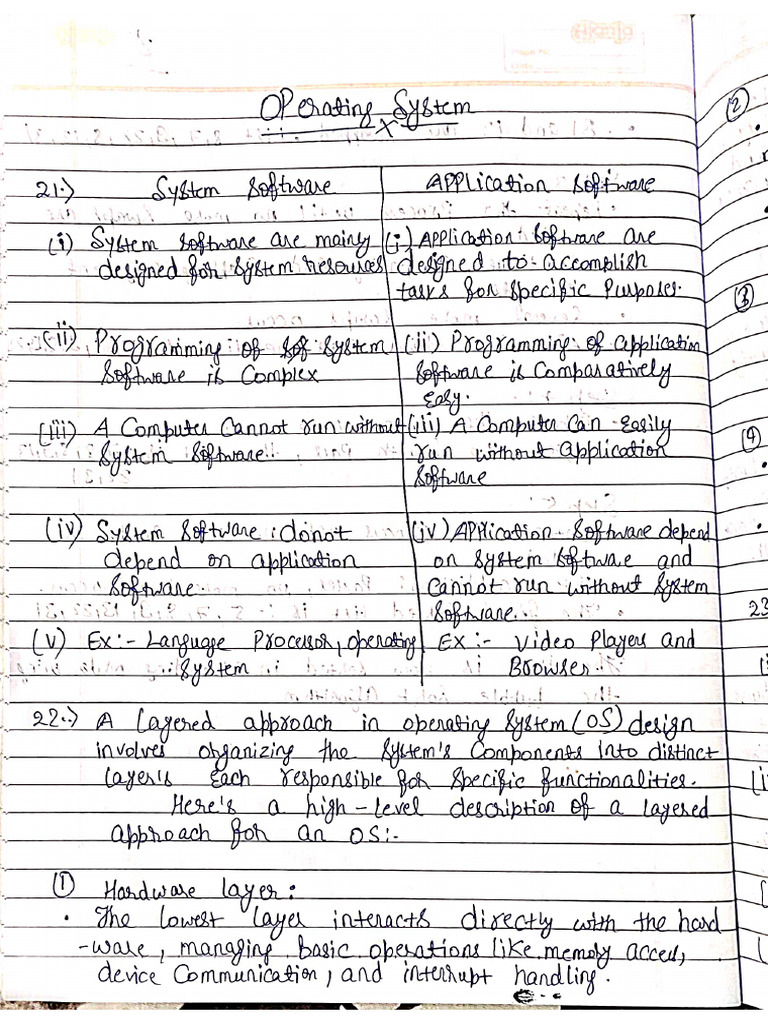 Operating System
21.) System Software | Application Software
(i) System Software are mainly | (i) Application Software are
designed for system resourses | designed to accomplish
tasks for specific Purposes.
(ii) Programming of System | (ii) Programming of application
Software is Complex | Software is Comparatively
Easy.
(iii) A Computer Cannot run without | (iii) A Computer Can Easily
System Software. | run without application
Software
(iv) System Software donot | (iv) Application Software depend
depend on application | on System Software and
Software. | Cannot run without System
Software.
(v) Ex:- Language Processor, operating | Ex:- Video Players and
System | Browser.
22.) A Layered approach in operating System (OS) design
involves organizing the System's Components into distinct
layer's each responsible for specific functionalities.
Here's a high-level description of a layered
approach for an OS:-
① Hardware layer:
• The lowest layer interacts directly with the hard
-ware, managing basic operations like memory access,
device Communication, and interrupt handling.
②
③
④
23